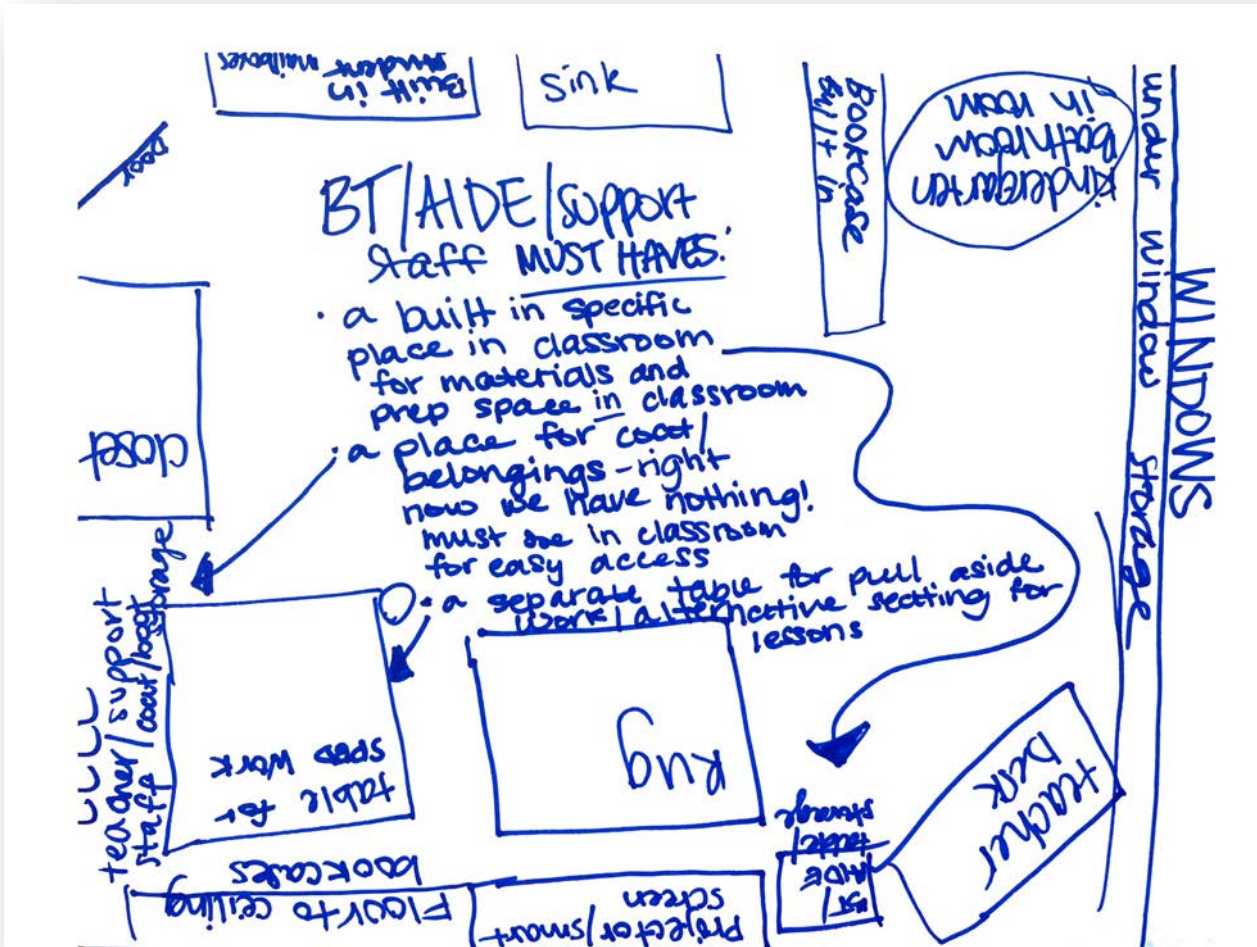 Built in
student mailboxes
sink
Bookcase
Built in
Kindergarten
bathroom
in room
under window storage
WINDOWS
Door
BT/AIDE/support
staff MUST HAVES:
· a built in specific
place in classroom
for materials and
prep space in classroom
· a place for coat/
belongings - right
now we have nothing!
must be in classroom
for easy access
· a separate table for pull aside
work/alternative seating for
lessons
closet
teacher/support
staff/coat/
storage
table for
sped work
Rug
teacher
Desk
AIDE
storage
Floor to ceiling
bookcases
Projector/smart
screen